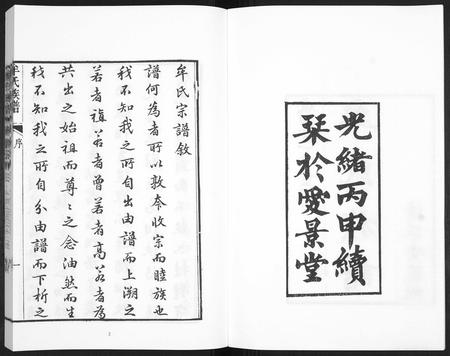 光緒丙申續
琹於愛景堂
牟氏宗譜敘
譜何為者所以敦本收宗而睦族也
我不知我之所自出由譜而上溯之
若者禰若者曾若者高若者為
共出之始祖而尊之之念油然而生
我不知我之所自分由譜而下析之
牟氏族譜
序
一
2